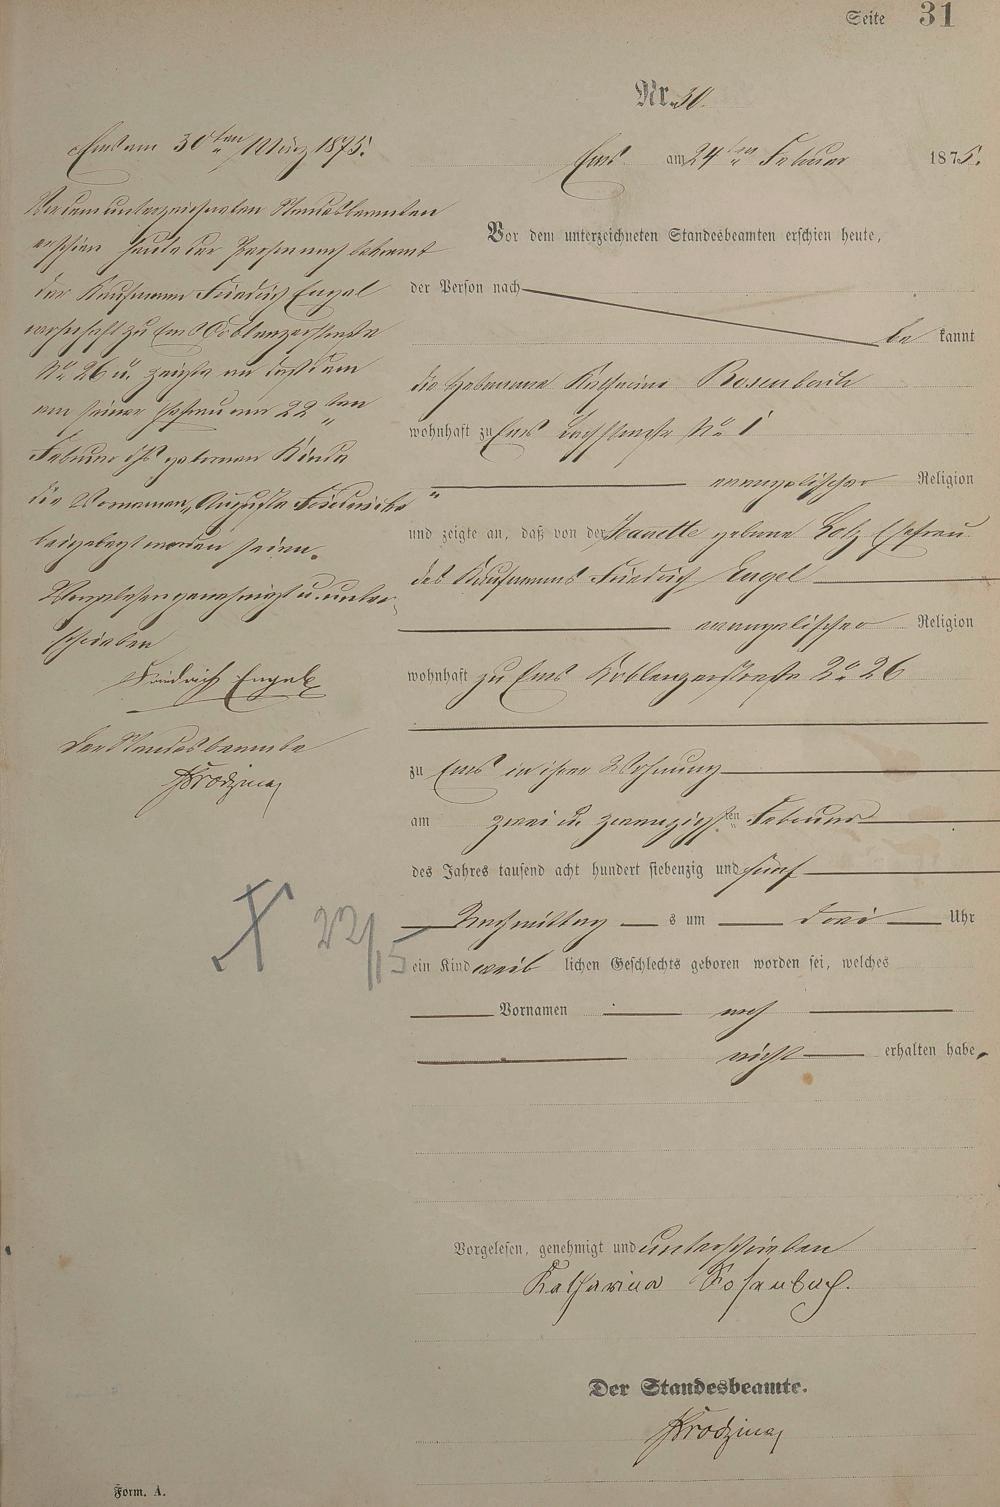 Seite 31
Nr. 30.
Ems am 24ten Februar 1875.
Vor dem unterzeichneten Standesbeamten erschien heute,
der Person nach
be kannt
die Hebamme Katharina Rosenbach
wohnhaft zu Ems No 1
evangelischer Religion
und zeigte an, daß von der Jeanette geborne Lotz Ehefrau
des Kaufmanns Friedrich Engel
evangelischer Religion
wohnhaft zu Ems Koblenzerstraße No 26
zu Ems in ihrer Wohnung
am zwei u. zwanzigsten Februar
des Jahres tausend acht hundert siebenzig und fünf
Nachmittag s um drei Uhr
ein Kind weib lichen Geschlechts geboren worden sei, welches
Vornamen noch
nicht erhalten habe.
Vorgelesen, genehmigt und unterschrieben
Katharina Rosenbach.
Der Standesbeamte.
Form. A.
Ems am 30ten März 1875.
Vor dem unterzeichneten Standesbeamten
erschien heute der Person nach bekannt
der Kaufmann Friedrich Engel
wohnhaft zu Ems Coblenzerstraße
No 26 u. zeigte an daß dem
von seiner Ehefrau am 22ten
Februar geborenen Kinde
die Vornamen "Auguste Friedericke"
beigelegt worden seien.
Vorgelesen genehmigt u. unter-
schrieben
Friedrich Engel
Der Standesbeamte
X 22/15